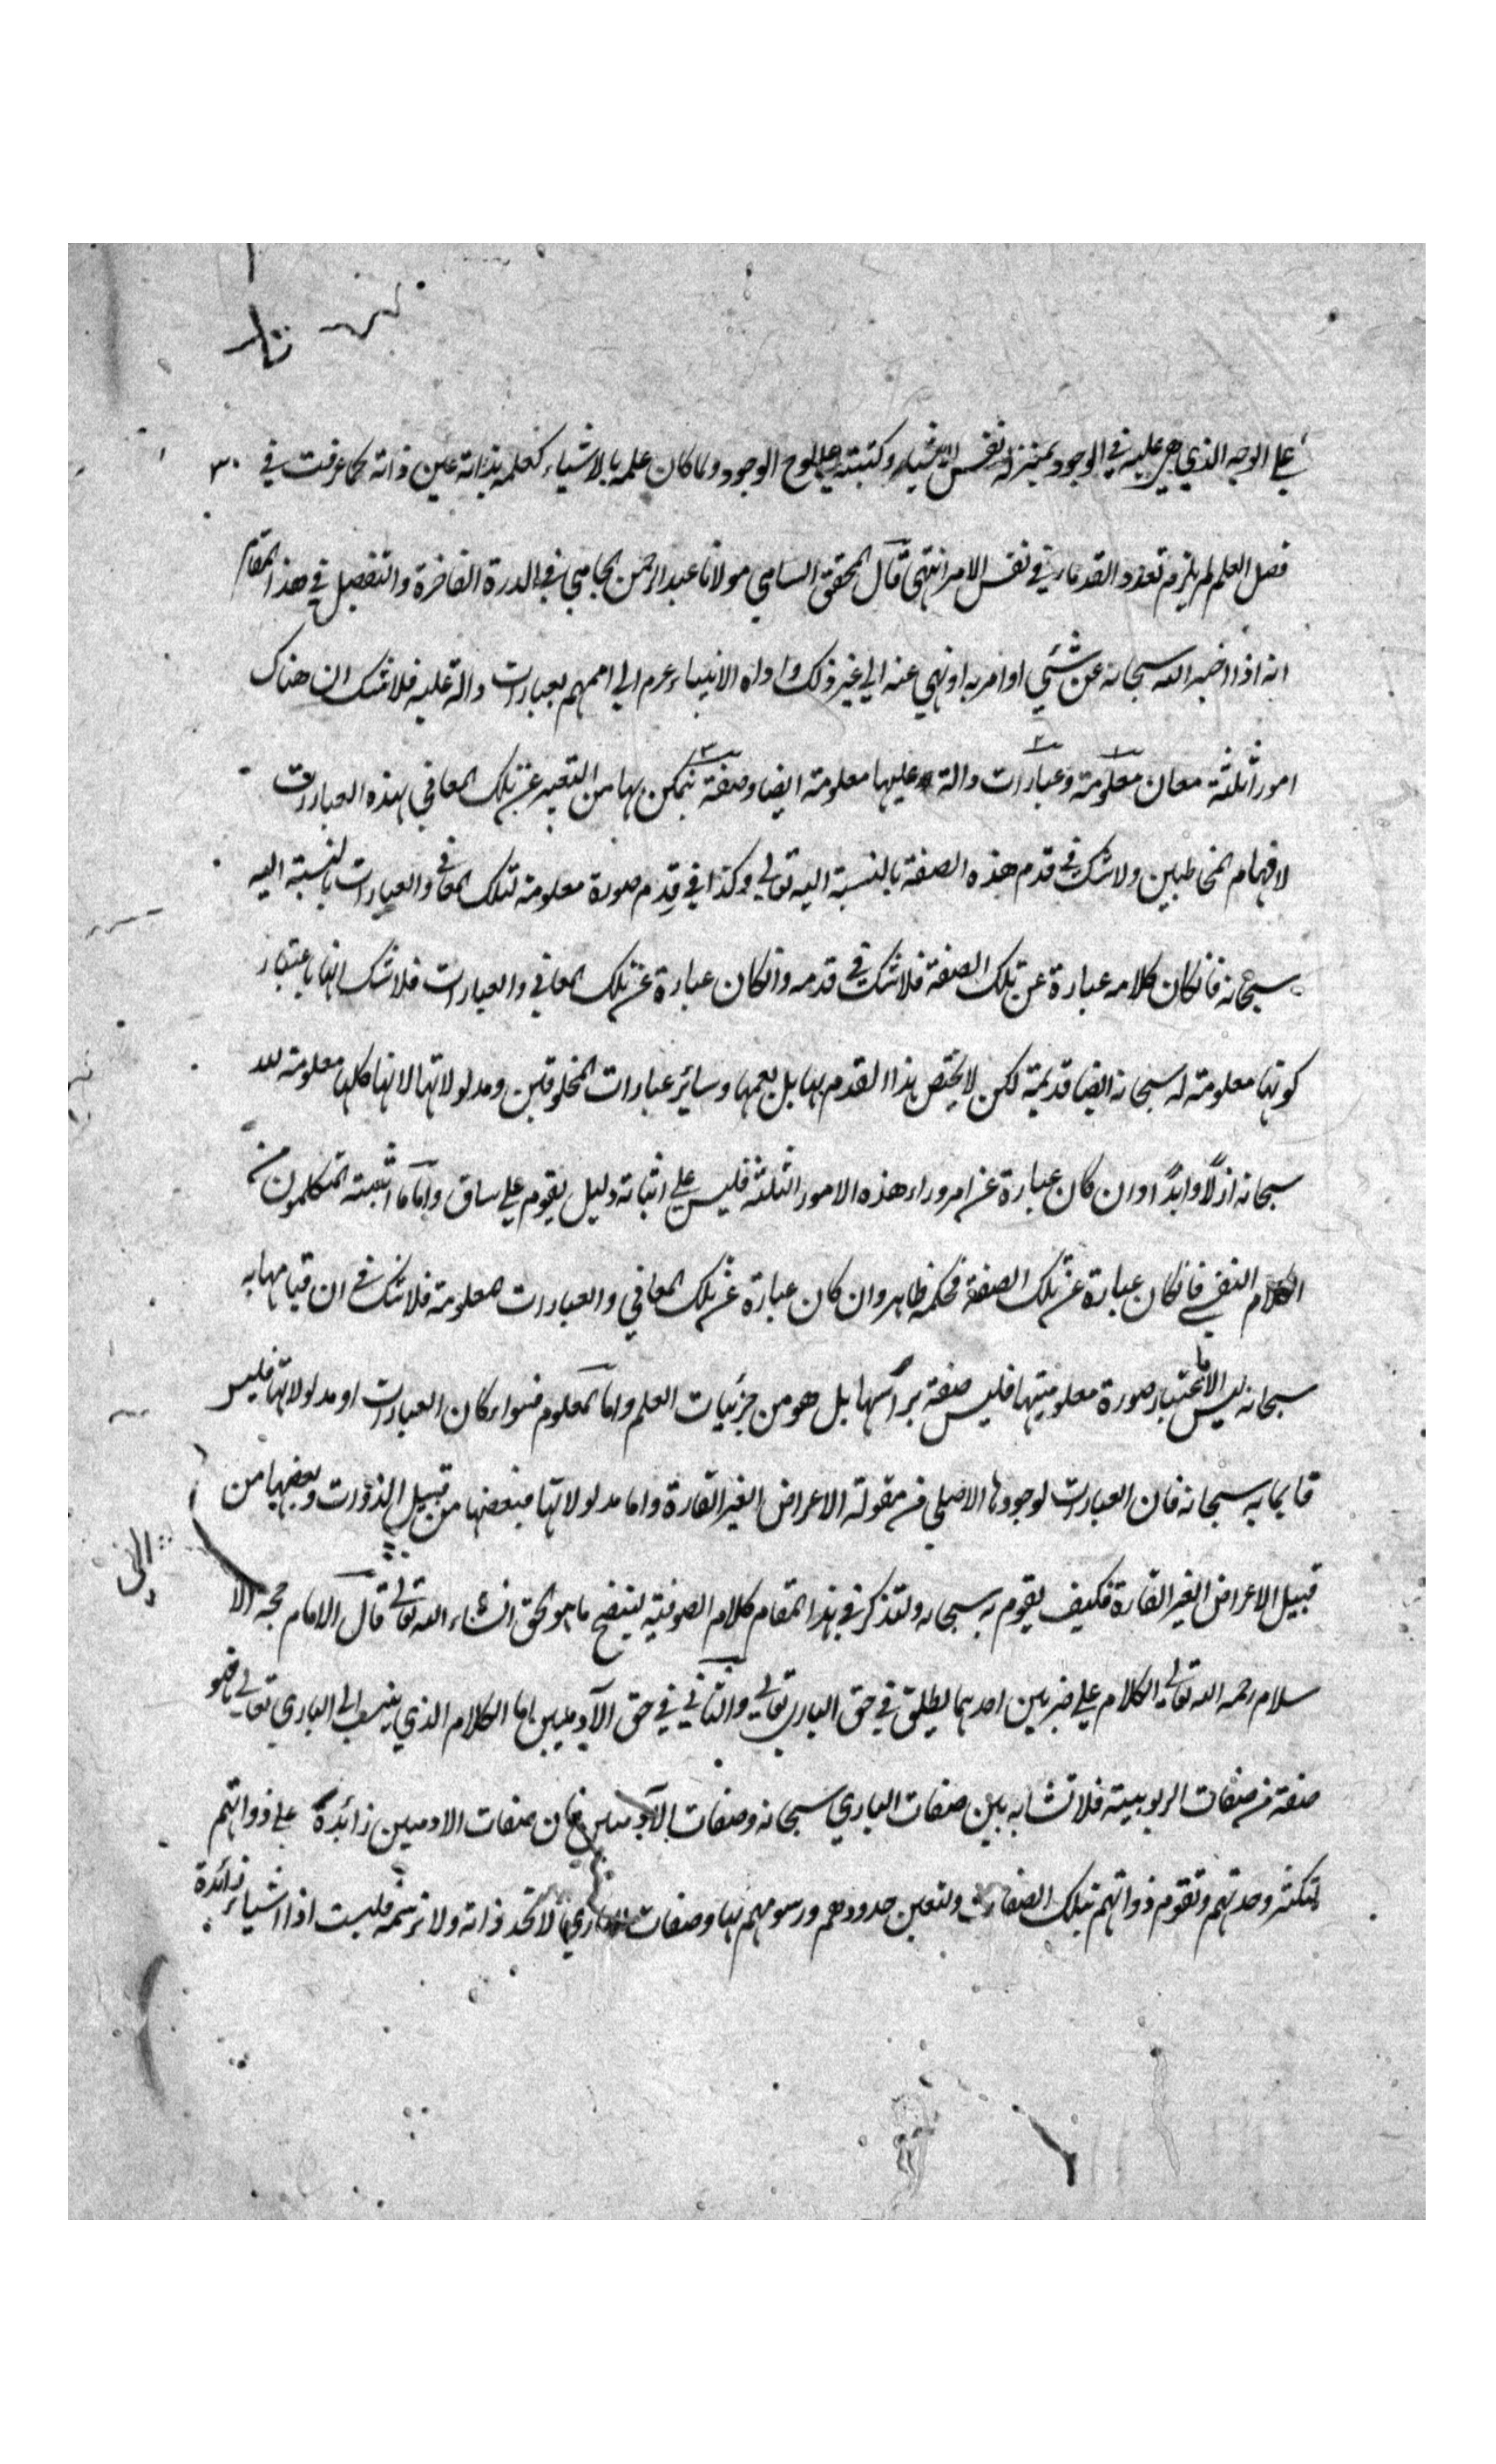 علي الوجه الذي هي عليه في الوجود بمنزلة نفس الاشياء وكتبته علي لوح الوجود ولما كان علمه بالاشياء كعلمه بذاته عين ذاته كما عرفت في
فصل العلم لم يلزم تعدد القدماء في نفس الامر انتهي قال المحقق السامي مولانا عبد الرحمن الجامي في الدرة الفاخرة والتفصيل في هذا المقام
انه اذا اخبر الله سبحانه عن شئي او امر به او نهي عنه الي غير ذلك واداه الانبياء عرم الي اممهم بعبارات دالة عليه فلا شك ان هناك
امورا ثلثة معان معلومة وعبارات دالة عليها معلومة ايضا وصفة يتمكن بها من التعبير عن تلك المعاني بهذه العبارات
لافهام المخاطبين ولا شك في قدم هذه الصفة بالنسبة اليه تعالي وكذا في قدم صورة معلومة لتلك المعاني والعبارات بالنسبة اليه
سبحانه فانكان كلامه عبارة عن تلك الصفة فلا شك في قدمه وانكان عبارة عن تلك المعاني والعبارات فلا شك انها باعتبار
كونها معلومة له سبحانه ايضا قديمة لكن لا يختص هذا القدم بها بل يعمها وسائر عبارات المخلوقين ومدلولاتها لانها كلها معلومة لله
سبحانه ازلا وابدا وان كان عبارة عن امر وراء هذه الامور الثلثة فليس علي اثباته دليل يقوم علي ساق واما ما اثبته المتكلمون من
الكلام النفسي فانكان عبارة عن تلك الصفة فحكمه ظاهر وان كان عبارة عن تلك المعاني والعبارات المعلومة فلا شك في ان قيامها به
سبحانه ليس الا باعتبار صورة معلوميتها فليس صفة برأسها بل هو من جزئيات العلم واما المعلوم فسواء كان العبارات او مدلولاتها فليس
قايما به سبحانه فان العبارات لوجودها الاصلي من مقولة الاعراض الغير القارة واما مدلولاتها فبعضها من قبيل الذوات وبعضها من
قبيل الاعراض الغير القارة فكيف يقوم به سبحانه ولنذكر في هذا المقام كلام الصوفية ليتضح ما هو الحق انشاء الله تعالي قال الامام حجة الا
سلام رحمه الله تعالي الكلام علي ضربين احدهما يطلق في حق الباري تعالي والثاني في حق الآدميين اما الكلام الذي ينسب الي الباري تعالي فهو
صفة من صفات الربوبية فلا تشابه بين صفات الباري سبحانه وصفات الآدميين فان صفات الادميين زائدة علي ذواتهم
لتكثر وحدتهم وتقوم ذواتهم بتلك الصفات وتتعين حدودهم ورسومهم بها وصفات الباري لا تحد ذاته ولا ترسمه فليست اذا اشياء زائدة